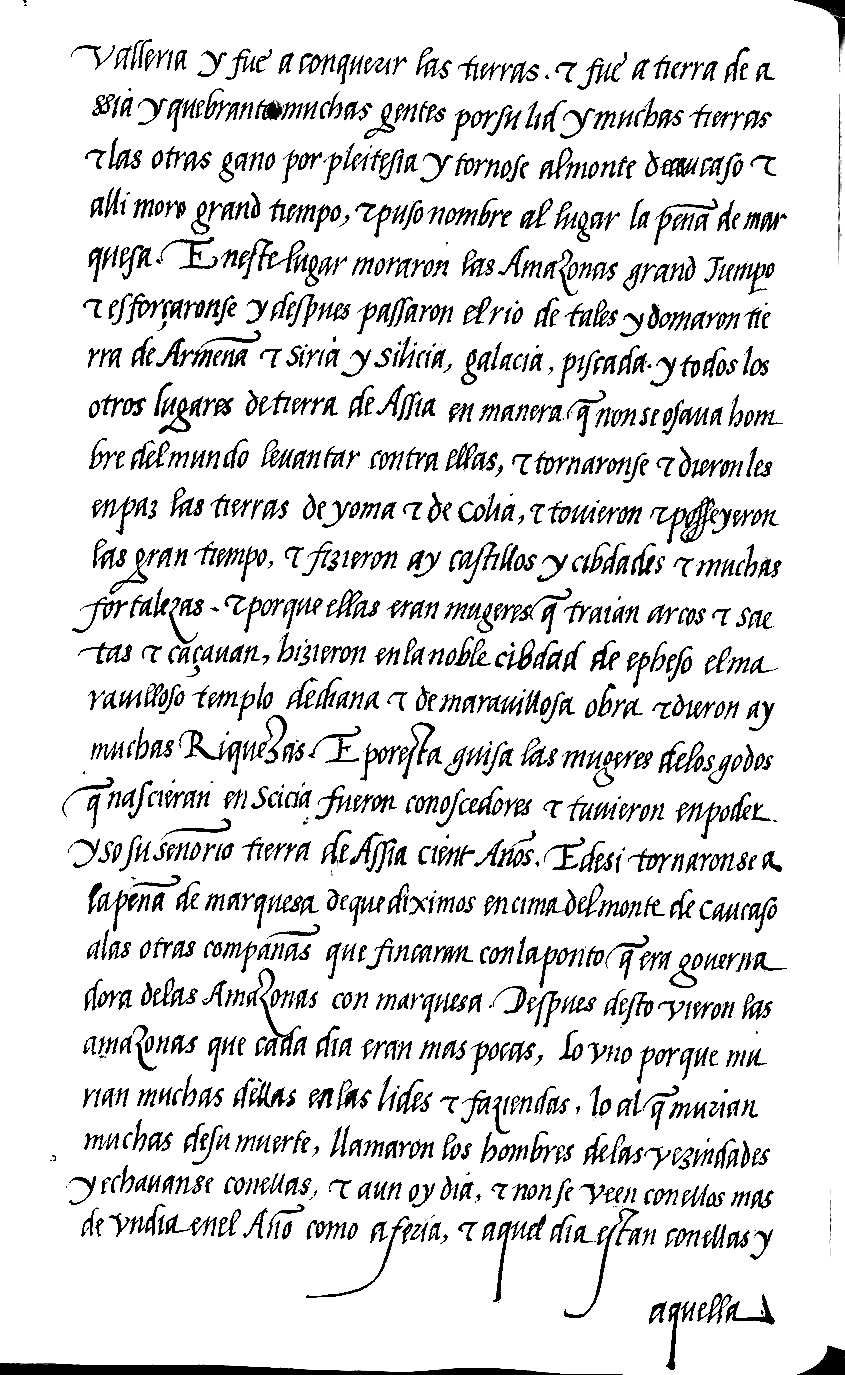 valleria y fue a conquerir las tierras. τ fue a tierra de a
ssia y quebranto muchas gentes por su lid y muchas tierras
τ las otras gano por pleitesia y tornose al monte de caucaso τ
alli moro grand tiempo, τ puso nombre al lugar la peña de mar
quesa. En este lugar moraron las Amazonas grand Tiempo
τ esforçaronse y despues passaron el rio de tales y domaron tie
rra de Armenã τ siria y silicia, galacia, piscada. y todos los
otros lugares de tierra de Assia en manera q̃ non se osaua hom
bre del mundo leuantar contra ellas, τ tornaronse τ dieron les
en paz las tierras de yoma τ de colia, τ touieron τ posseyeron
las gran tiempo, τ fizieron ay castillos y cibdades τ muchas
fortalezas. τ porque ellas eran mugeres q̃ traian arcos τ sae
tas τ caçauan, hizieron en la noble cibdad de epheso el ma
rauilloso templo de diana τ de marauillosa obra τ dieron ay
muchas Riquezas. E por esta guisa las mugeres de los godos
q̃ nascieran en scicia fueron conoscedores τ tuuieron en poder
y so su señorio tierra de Assia cient Años. E desi tornaronse a
la peña de marquesa de que diximos encima del monte de caucaso
a las otras compañas que fincaran con laponto q̃ era gouerna
dora de las Amazonas con marquesa. Despues desto vieron las
amazonas que cada dia eran mas pocas, lo vno porque mu
rian muchas dellas en las lides τ faziendas, lo al q̃ murian
muchas de su muerte, llamaron los hombres de las vezindades
y echauanse con ellas, τ aun oy dia, τ non se veen con ellos mas
de vn dia en el Año como a feria, τ aquel dia estan con ellas y
aquella